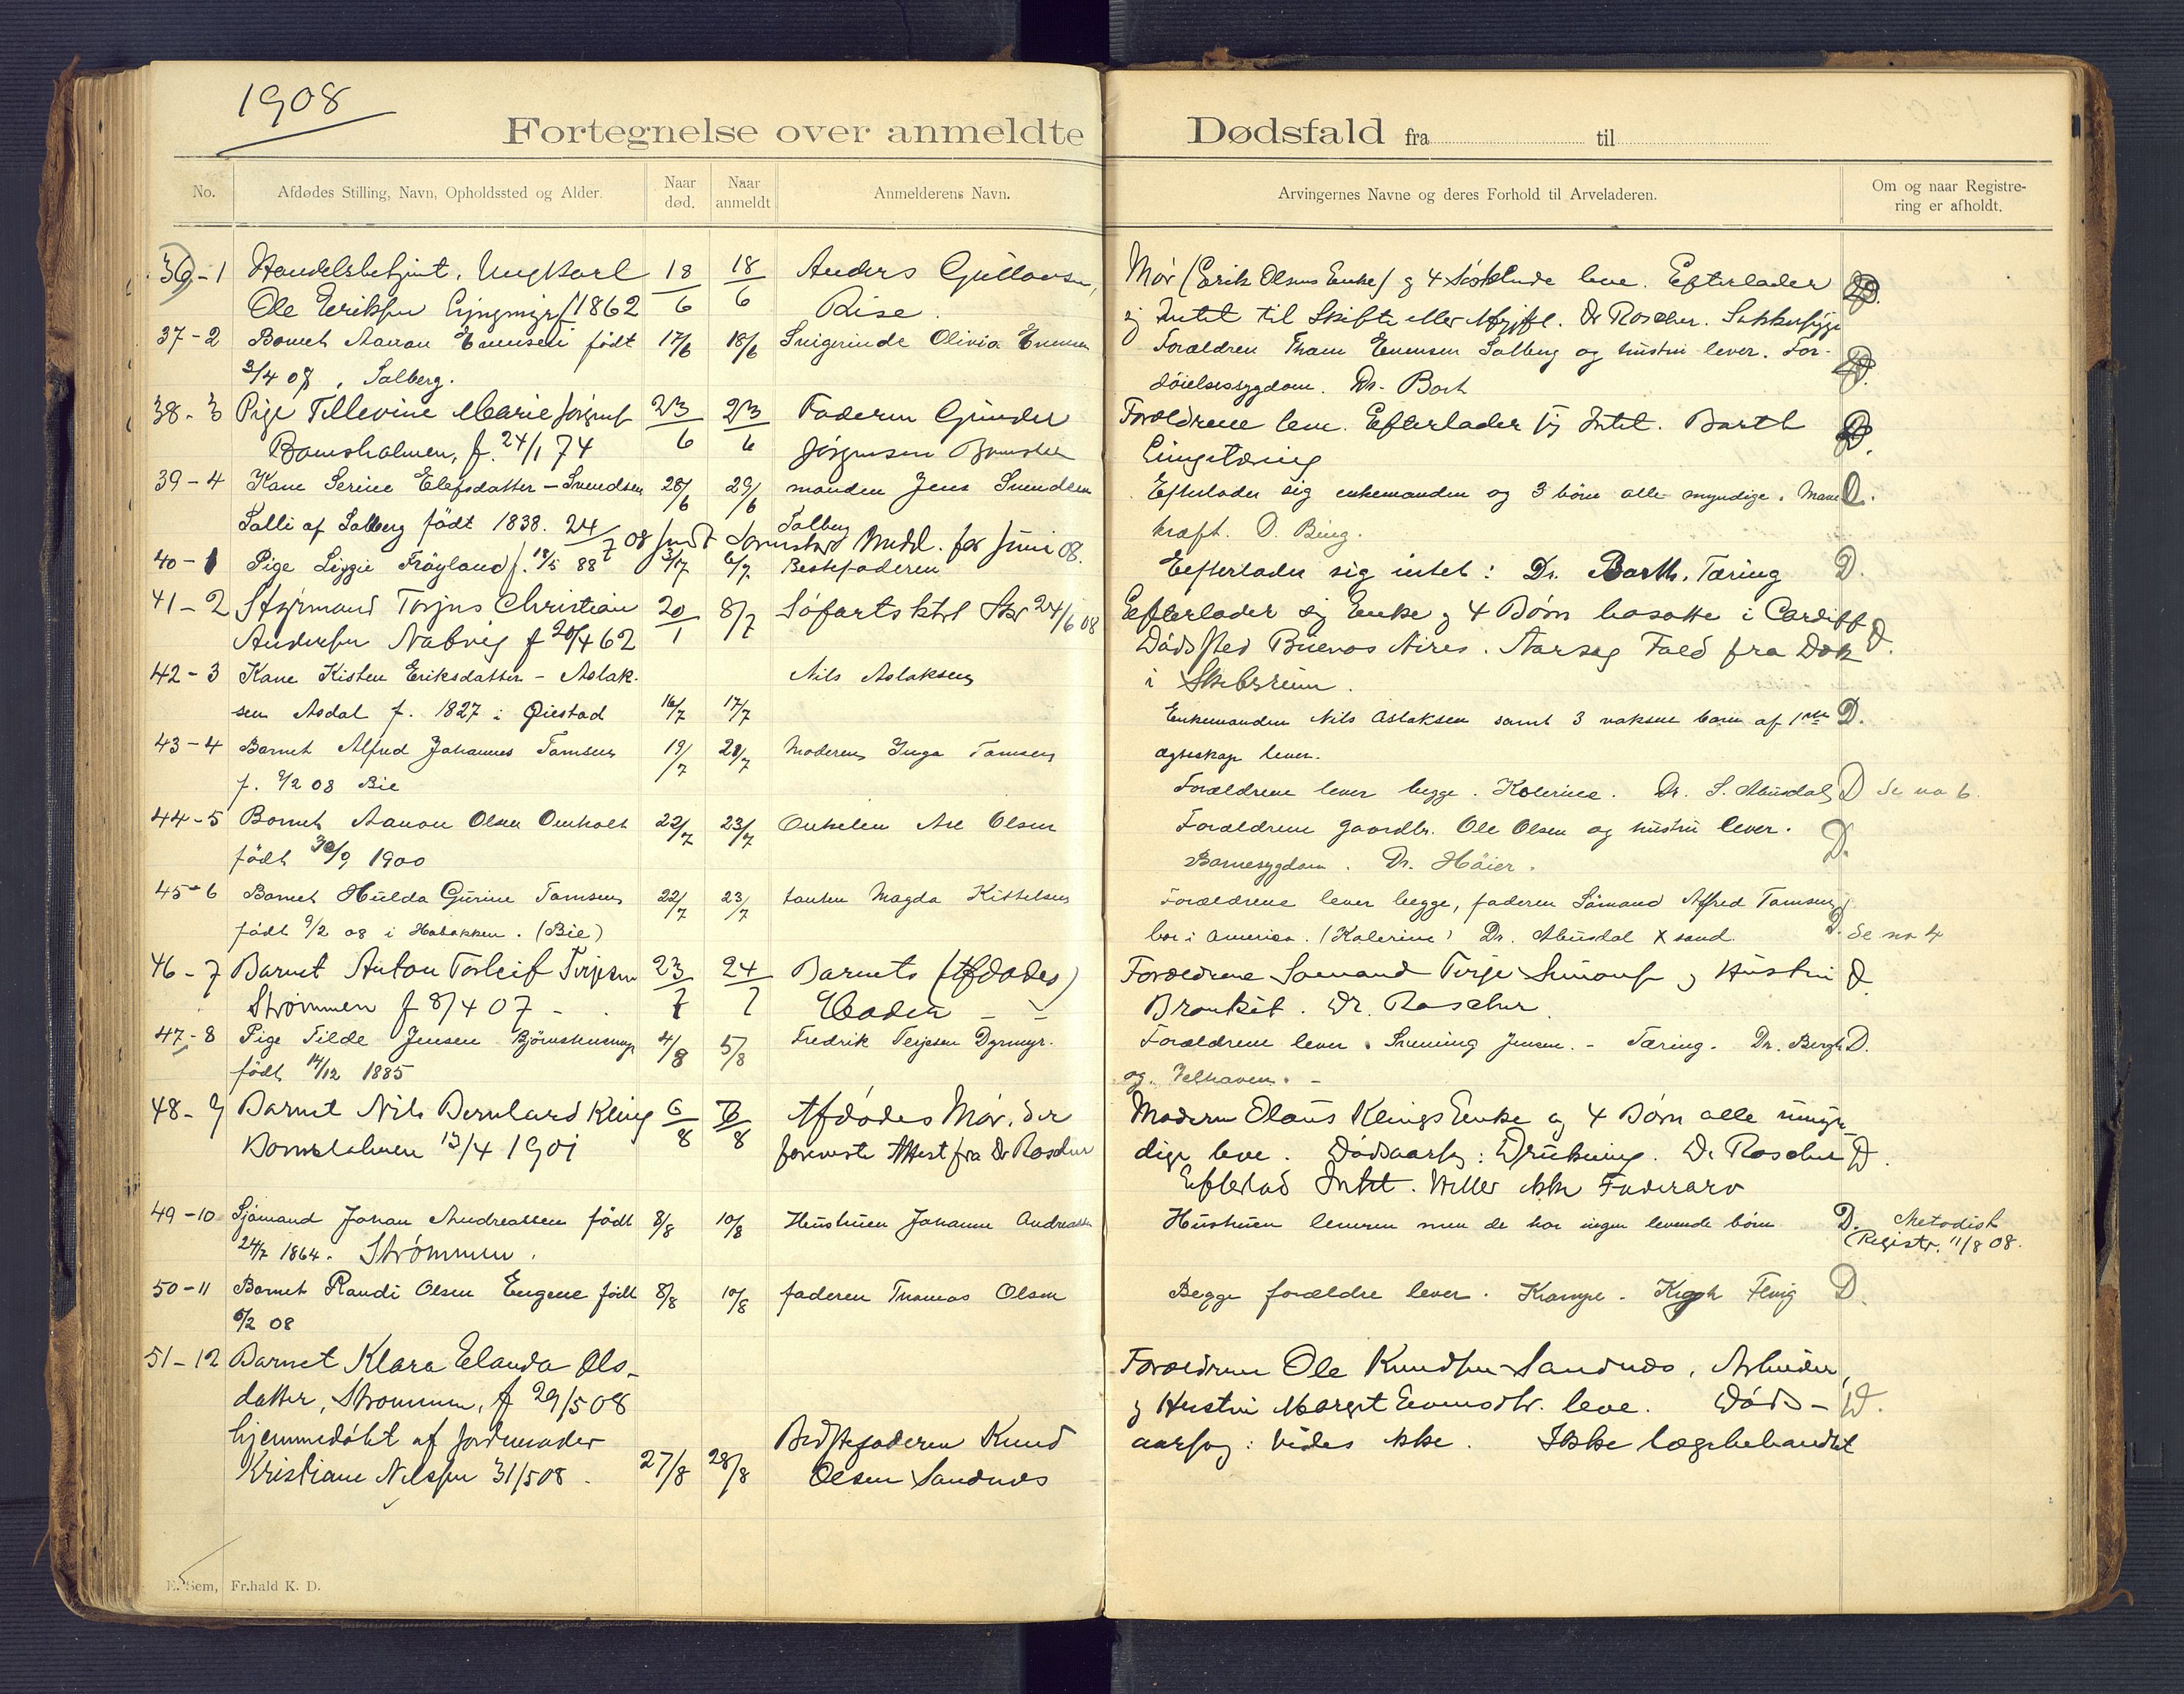 1908
Fortegnelse over anmeldte Dødsfald fra til
No.
Afdødes Stilling, Navn, Opholdssted og Alder.
Naar død.
Naar anmeldt
Anmelderens Navn.
Arvingernes Navne og deres Forhold til Arveladeren.
Om og naar Registrering er afholdt.
36-1 Handelsbetjent, Ungkarl 18/6 18/6 Anders Mor (Erik Olsens Enke) og 4 leve. Efterlader
Ole Eriksen f 1862 Rise. sig Intet til Skifte eller Dr Roscher.
37-2 Barnet Aanon Evensen født 17/6 18/6 Olivia Evensen Forældren Evensen Salberg og hustru lever. For-
3/4 08, Salberg. døielsessygdom. Dr.
38-3 Pige Tellevine Marie 23/6 23/6 Faderen Gunder Forældrene leve. Efterlader sig Intet. Barth
f. 24/1 74 Jørgensen Lungetæring
39-4 Kone Serine Elefsdatter - Svendsen 28/6 29/6 manden Jens Svendsen Efterlader sig enkemanden og 3 børn alle myndige. D.
Salli af Salberg født 1838. Salberg kraft. D. Bing.
24/7 08 sendt Medd. for Juni 08.
40-1 Pige Lizzie Frøyland f. 18/5 88 3/7 6/7 Bestefaderen Eefterlader sig intet: Dr. Barth. Tæring D.
41-2 Styrmand Torjus Christian 20/1 8/7 Søfartsktrl Skr 24/6 08 Eefterlader sig Enke og 4 Børn bosatte i Cardiff D.
Andersen Nabvig f 20/4 62 Dødssted Buenos Aires. Aarsag Fald fra Dæk
i Skibsrum.
42-3 Kone Kisten Eriksdatter - Aslak- Nils Aslaksen
sen Asdal f. 1827 i Øiestad 16/7 17/7 Enkemanden Nils Aslaksen samt 3 voksne barn af 1ste D.
ægteskap lever.
43-4 Barnet Alfred Johannes Tomsen 19/7 20/7 Moderen Inga Tomsen
f. 9/2 08 Bie Forældrene lever begge. Kolerine. Dr. S. D Se no 6.
44-5 Barnet Aanon Olsen Omholt 22/7 23/7 Onkelen Ole Olsen Forældrene gaardbr. Ole Olsen og hustru lever. D.
født 30/9 1900 Barnesygdom. Dr. Høier.
45-6 Barnet Hulda Gurine Tomsen 22/7 23/7 tanten Magda Kittelsen Forældrene lever begge, faderen Sømand Alfred Tomsen
født 9/2 08 i Holbakken. (Bie) bor i America. (Kolerine) Dr. D. Se no 4
46-7 Barnet Anton Torleif Terjesen 23/7 24/7 Barnets (Afdødes) Forældrene Sømand Terje og Hustru D
Strømmen f 8/4 07 Fader Bronkit. Dr. Roscher.
47-8 Pige Tilde Jensen 4/8 5/8 Fredrik Terjesen Dyrmyr. Forældrene lever. Jensen. - Tæring. Dr. Bergh D.
født 14/12 1885 og Velhaven. -
48-9 Barnet Nils Bernhard Kling 6/8 7/8 Afdødes Mor, der Moderen Olaus Klings Enke og 4 Børn alle umyn-
13/4 1901 foreviste Attest fra Dr Roscher dige leve. Dødsaarsag: Drukning. Dr Roscher D.
Efterlod Intet. Heller ikke Faderarv
49-10 Sjømand Johan Andreassen født 8/8 10/8 Hustruen Johanne Andreassen Hustruen lever men de har ingen levende børn D. Metodist
24/7 1864. Strømmen. Registr. 11/8 08.
50-11 Barnet Randi Olsen Eugene født 8/8 10/8 faderen Thomas Olsen Begge forældre lever. Krampe. D
6/2 08
51-12 Barnet Klara Elanda Ols- Forældrene Ole Knudsen Sandnes, Arbeider,
datter, Strommen, f 29/5 08 og Hustru Margit leve. Døds- D.
hjemmedøbt af Jordmoder Bedstefaderen Knud aarsag: Vides ikke. Ikke lægebehandlet
Kristiane Nilssen 31/5 08. 27/8 28/8 Olsen Sandnes
E. Sem, Fr.hald K. D.